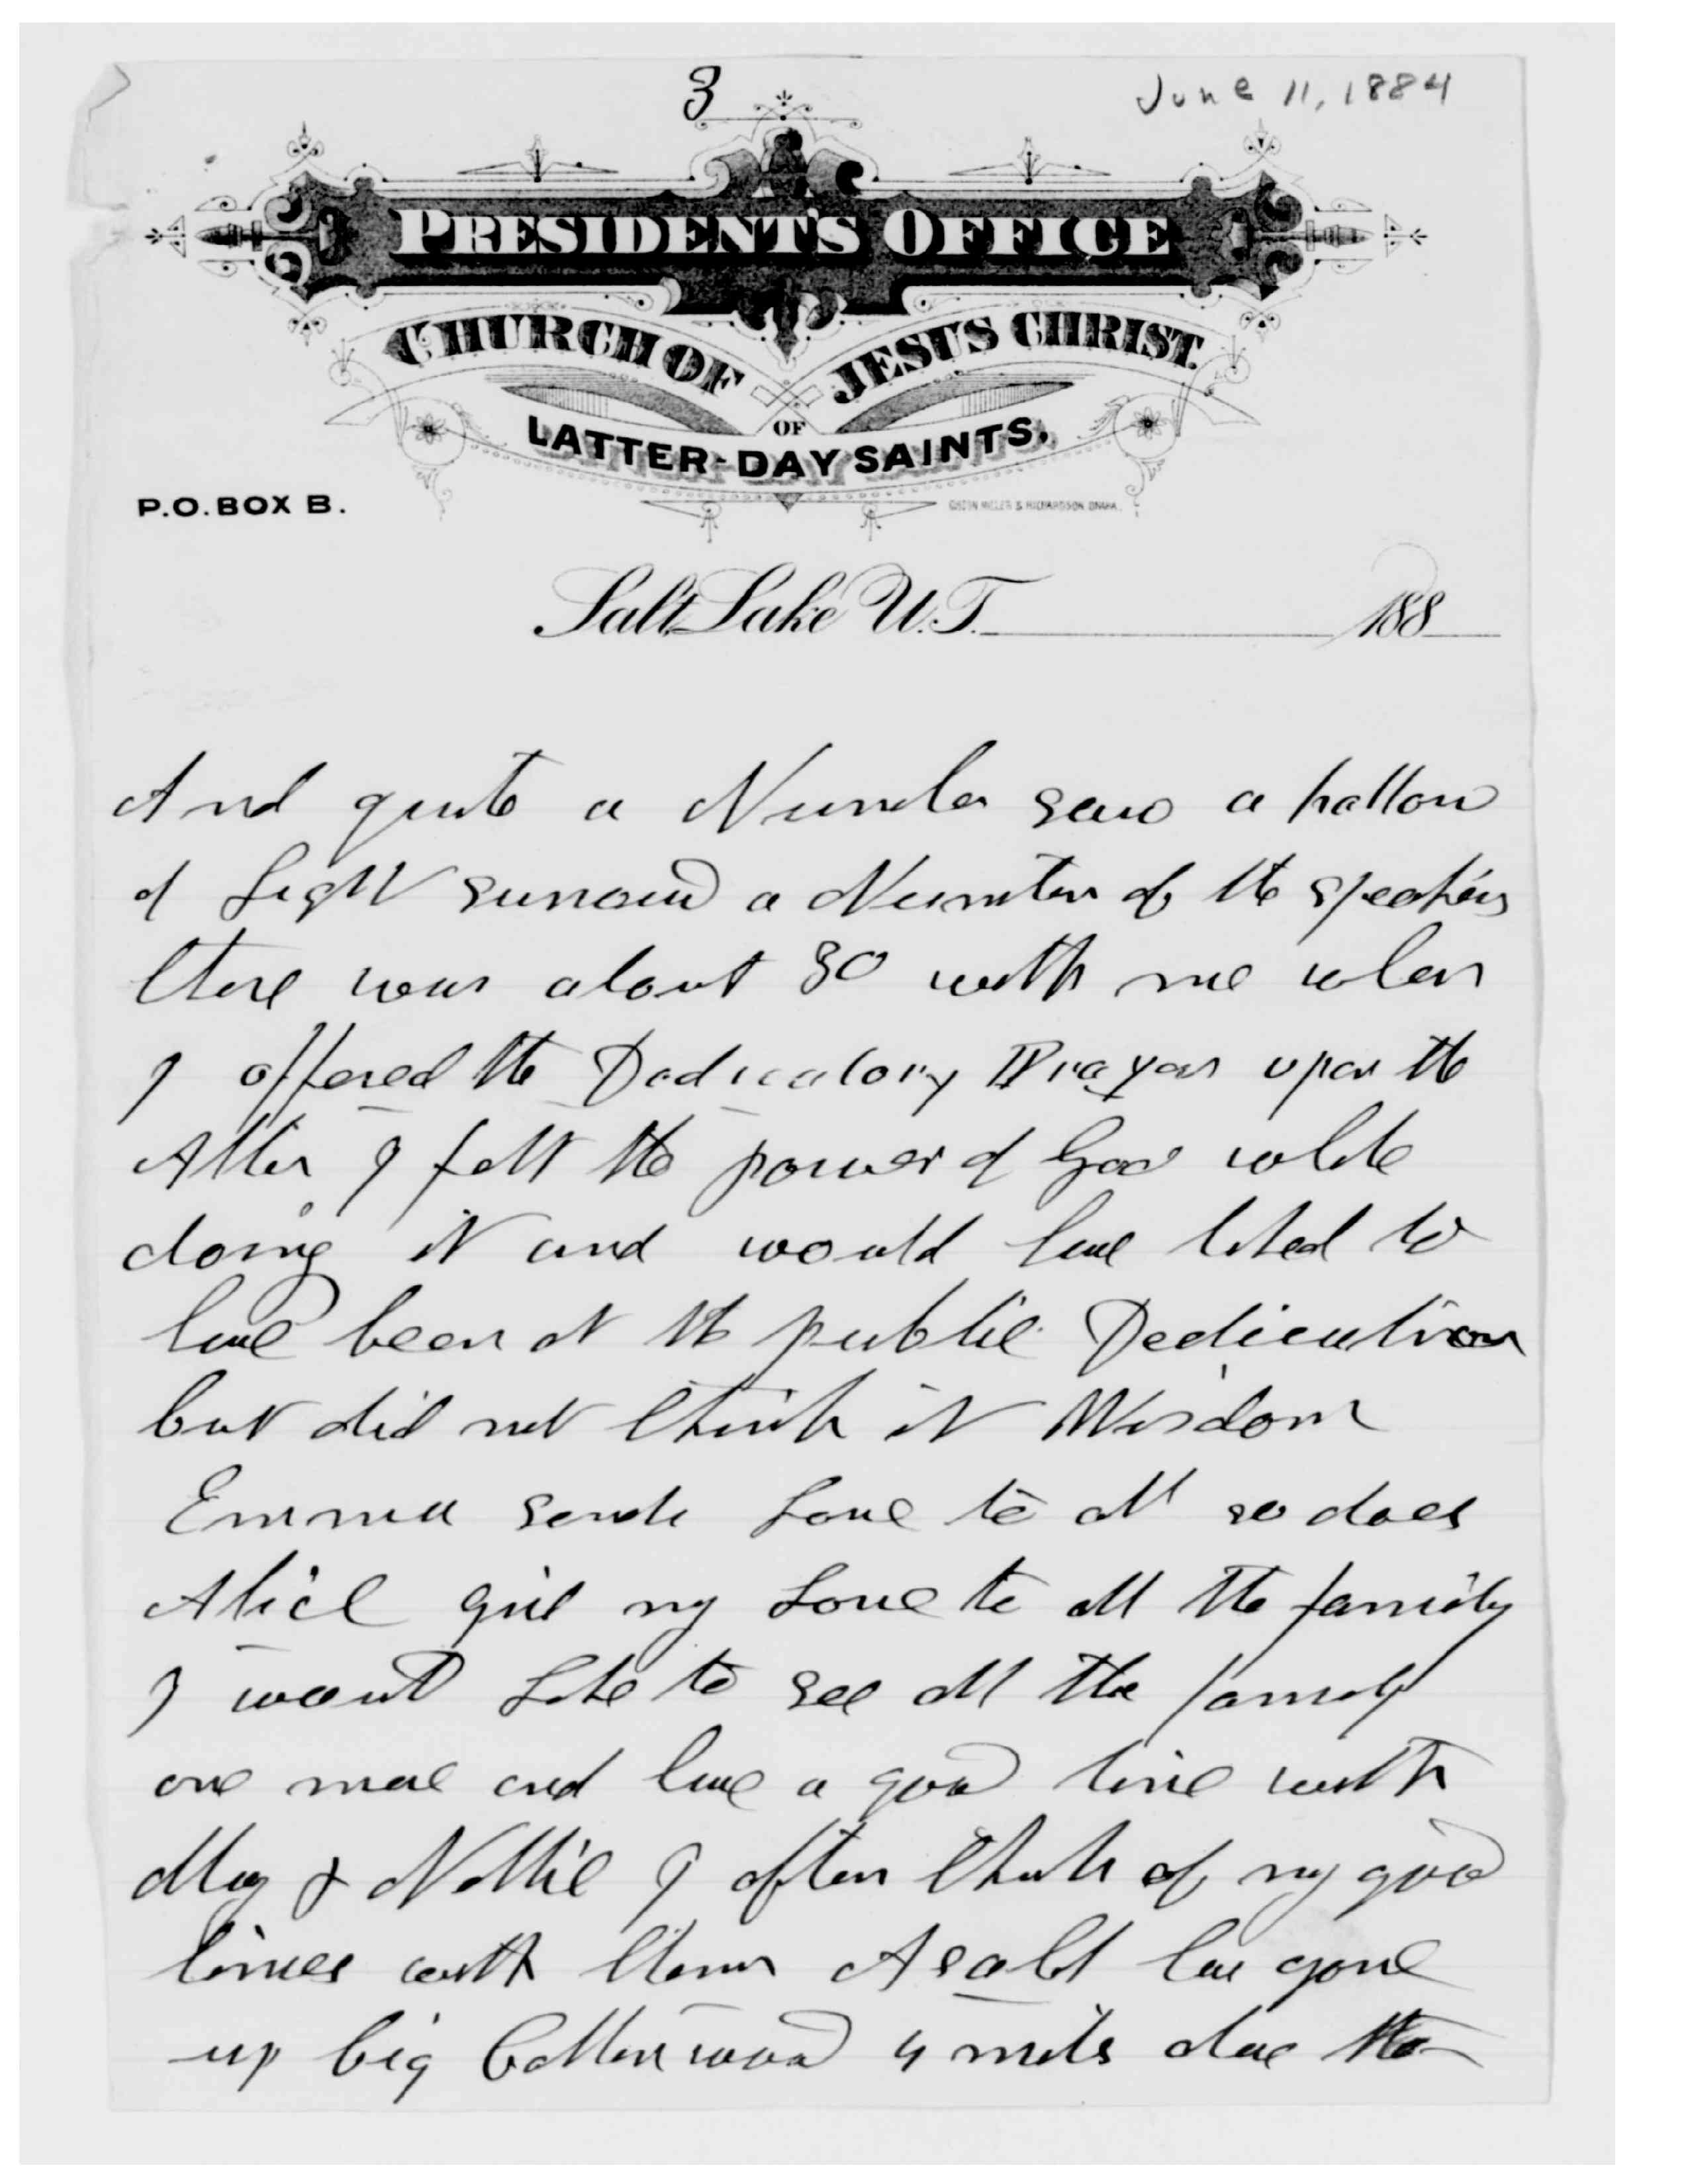 3
June 11, 1884
PRESIDENT'S OFFICE
CHURCH OF JESUS CHRIST
OF
LATTER-DAY SAINTS.
P.O. BOX B.
Salt Lake U.T. 188
And quite a Number saw a hallow
of Light surround a Number of the speakers
there was about 30 with me when
I offered the Dedicatory Prayer upon the
Alter I felt the power of God while
doing it and would have liked to
have been at the public Dedication
but did not think it Wisdom
Emma sends Love to all so does
Alice give my Love to all the family
I would Like to see all the family
one more and have a good time with
May & Nettie I often think of my good
times with them Asahel has gone
up big Cottonwood 4 miles above the